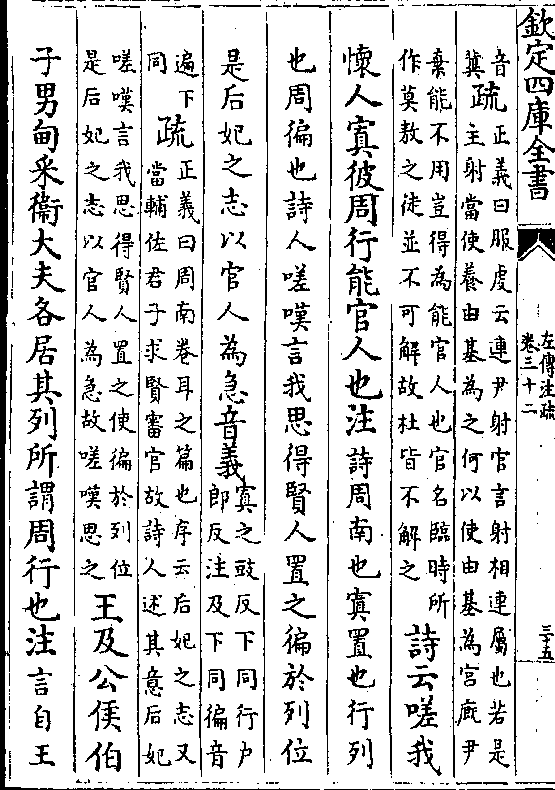 欽定四庫全書
左傳注疏
卷三十二
三十五
音正義曰服虔云連尹射官言射相連屬也若是
冀疏主射當使養由基為之何以使由基為宮廐尹
棄能不用豈得為能官人也官名臨時所
作莫敖之徒並不可解故杜皆不解之詩云嗟我
懷人寘彼周行能官人也注詩周南也寘置也行列
也周徧也詩人嗟嘆言我思得賢人置之徧於列位
是后妃之志以官人為急音義寘之豉反下同行户
郎反注及下同徧音
遍下疏正義曰周南卷耳之篇也序云后妃之志又
同當輔佐君子求賢審官故詩人述其意后妃
嗟嘆言我思得賢人置之使徧於列位
是后妃之志以官人為急故嗟嘆思之王及公侯伯
子男甸采衞大夫各居其列所謂周行也注言自王